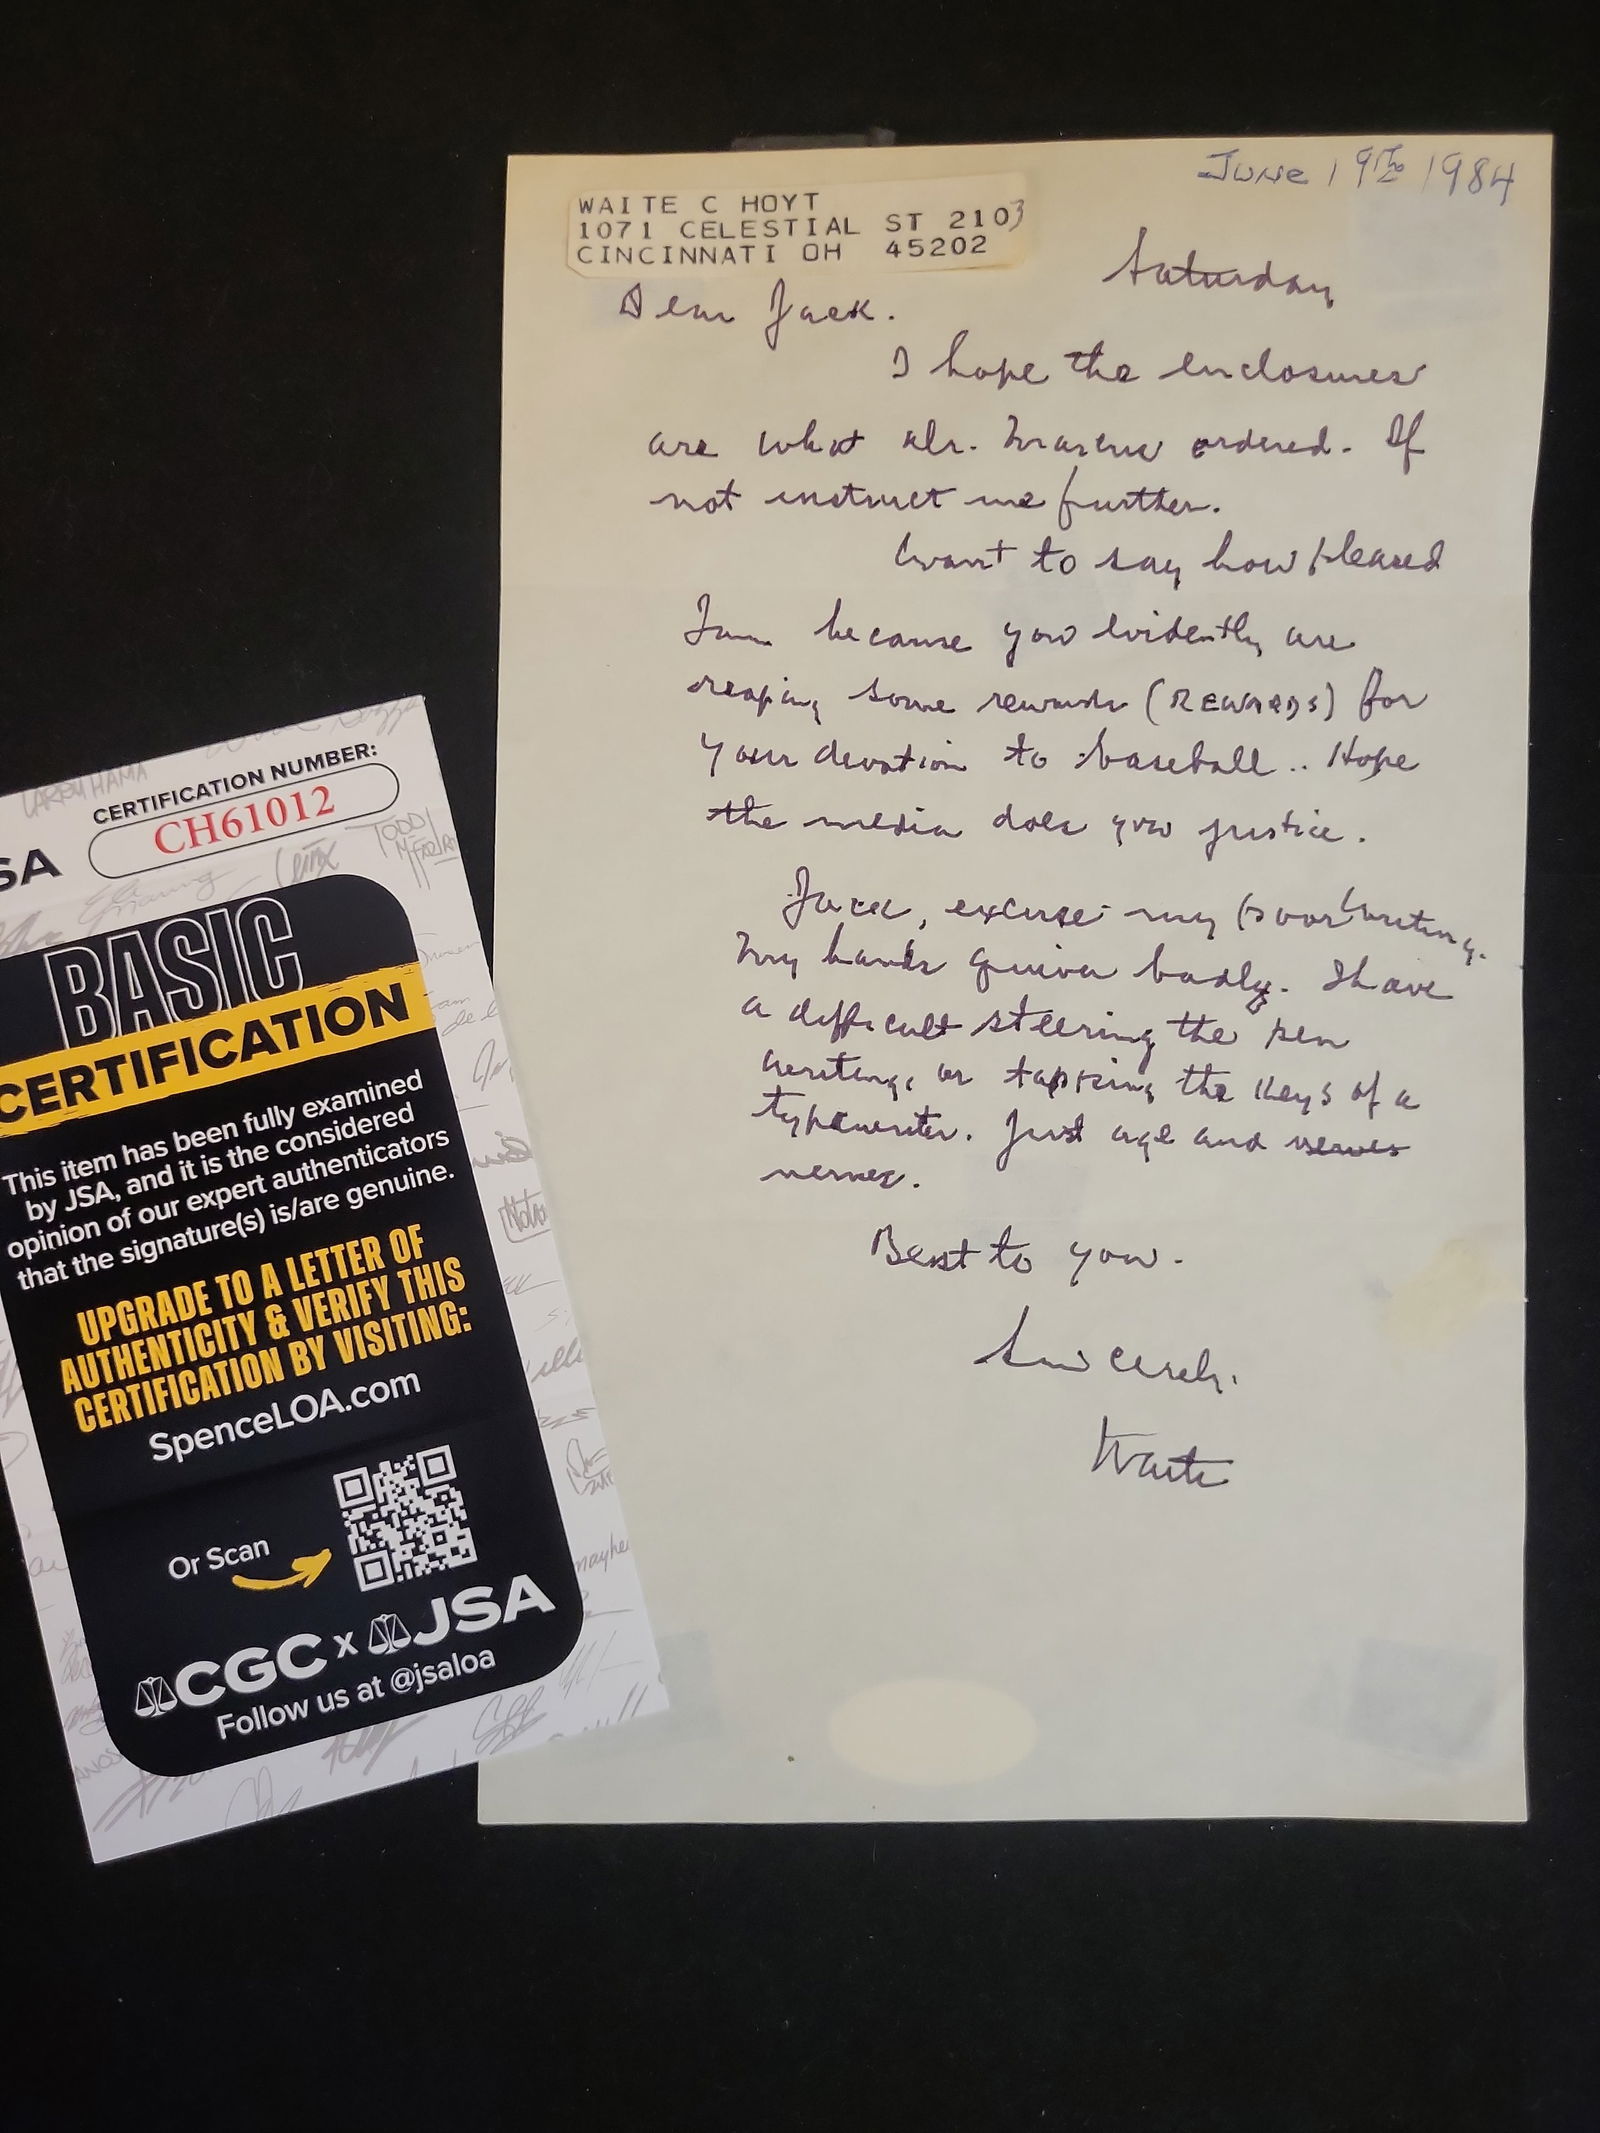 JUNE 19TH 1984
WAITE C HOYT
1071 CELESTIAL ST 2103
CINCINNATI OH 45202
Saturday
Dear Jack.
I hope the enclosures
are what Mr. Marcus ordered. If
not instruct me further.
Want to say how pleased
I am because you evidently are
reaping some rewards (REWARDS) for
your devotion to baseball.. Hope
the media does you justice.
Jack, excuse my poor writing.
My hands quiver badly. I have
a difficult steering the pen
writing, or tapping the keys of a
typewriter. Just age and
nerves.
Best to you.
Sincerely.
Waite
SA
CERTIFICATION NUMBER:
CH61012
LARRY HAMA
TODD
BASIC
CERTIFICATION
This item has been fully examined
by JSA, and it is the considered
opinion of our expert authenticators
that the signature(s) is/are genuine.
UPGRADE TO A LETTER OF
AUTHENTICITY & VERIFY THIS
CERTIFICATION BY VISITING:
SpenceLOA.com
Or Scan
CGC x JSA
Follow us at @jsaloa